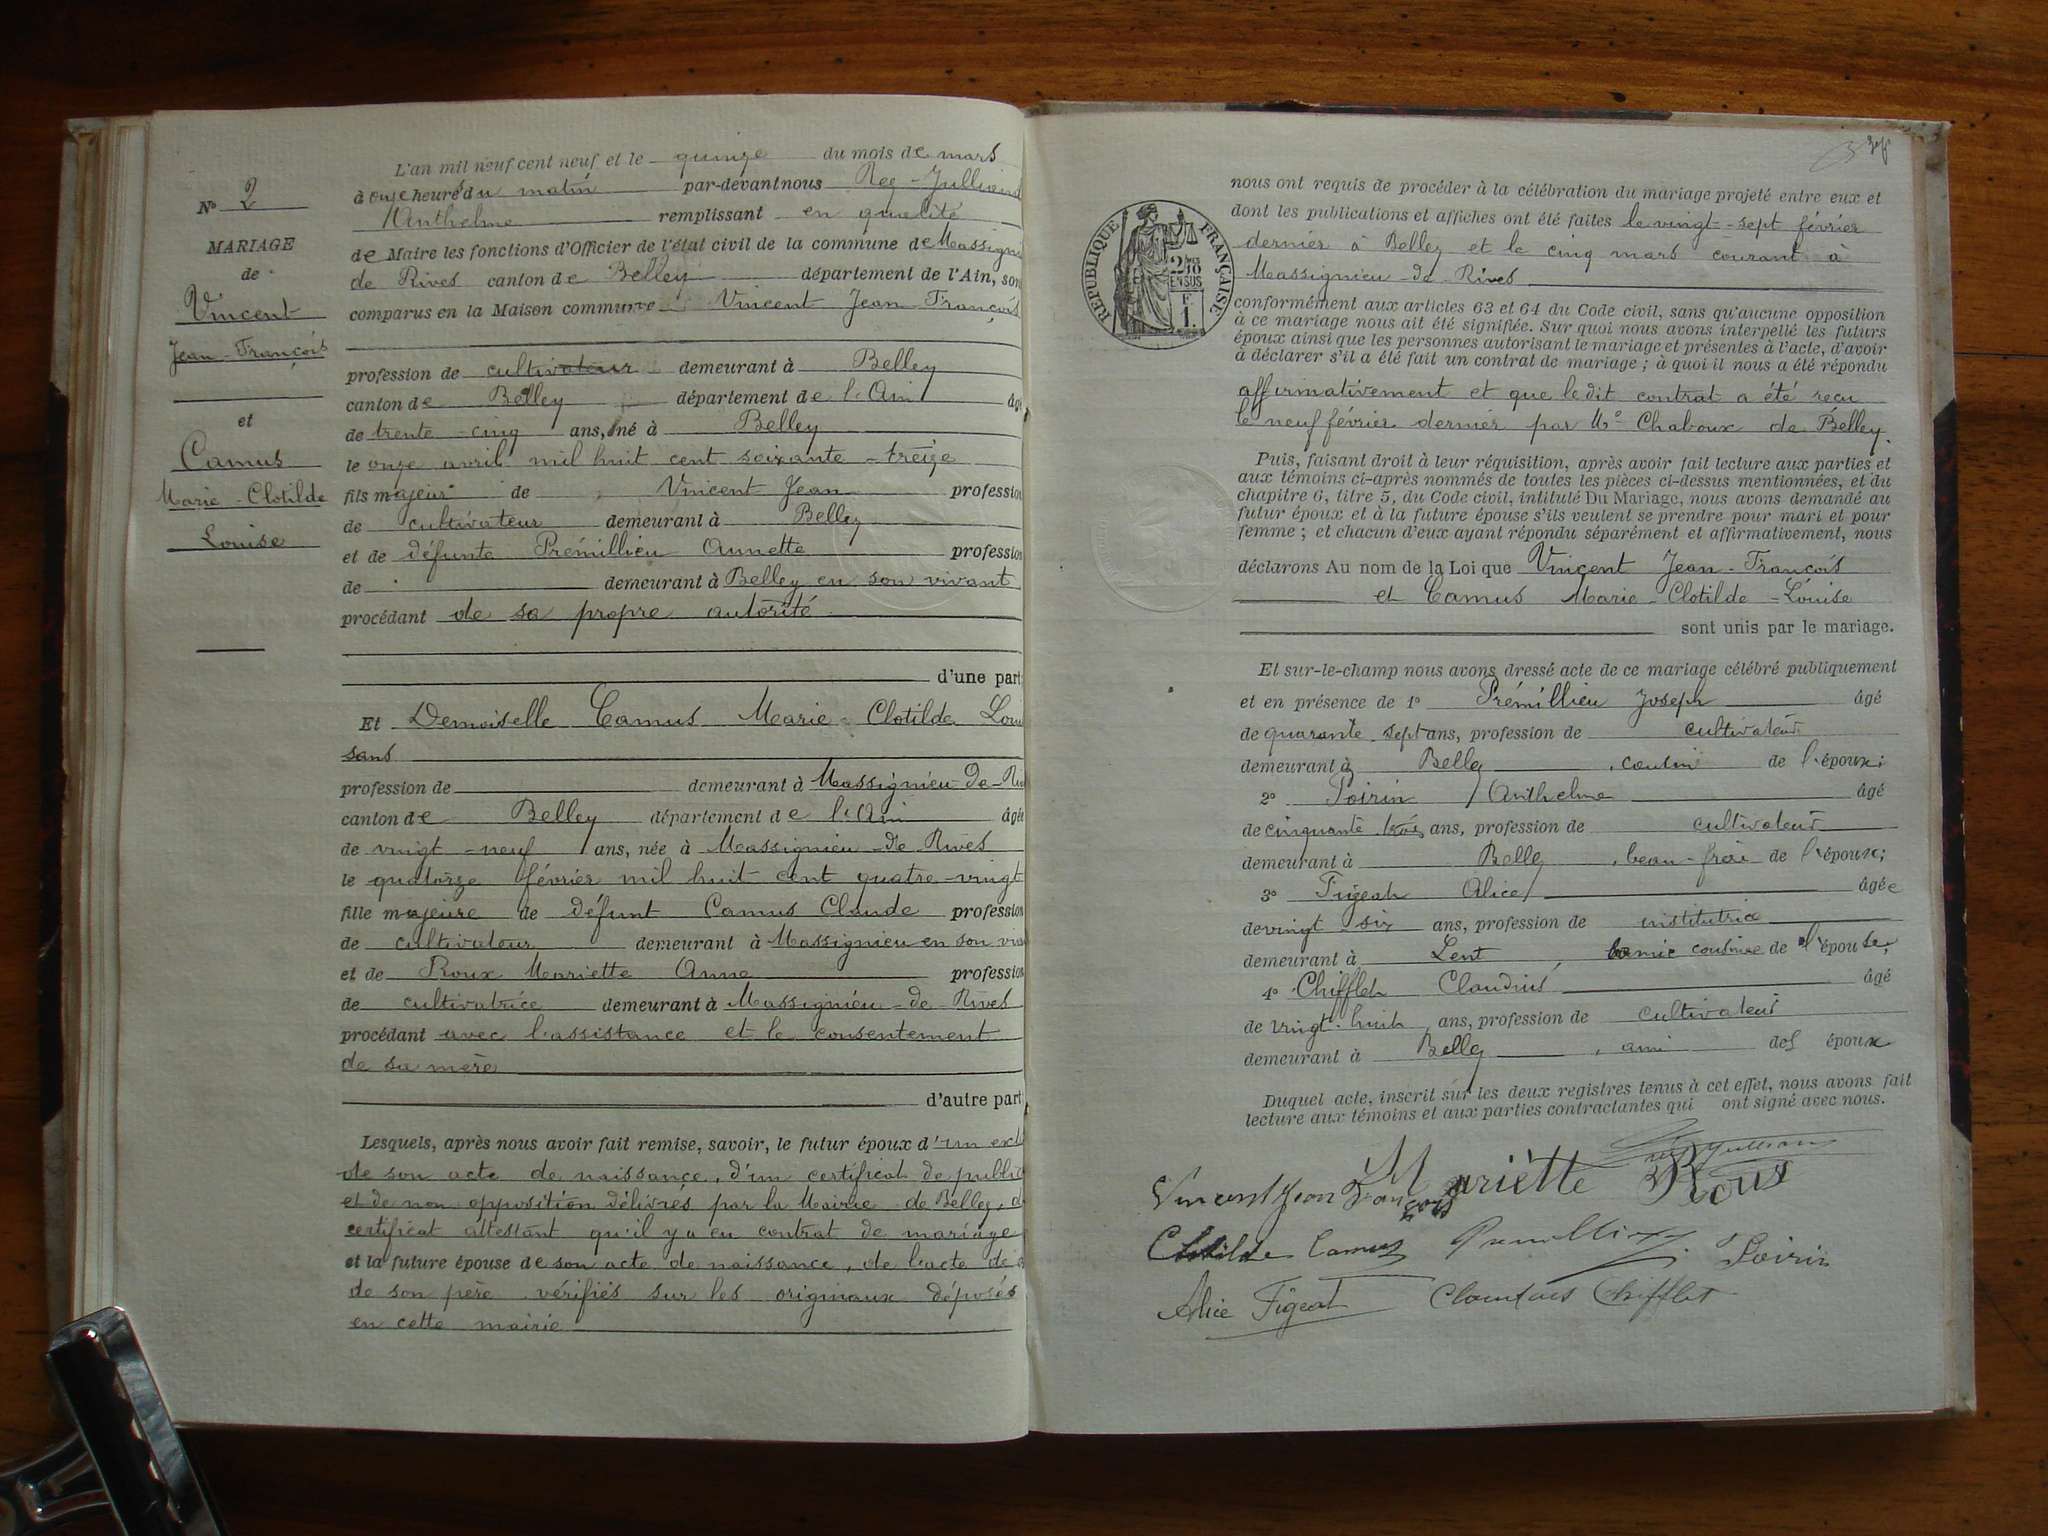 N° 2
MARIAGE
de
Vincent
Jean-François
et
Camus
Marie-Clotilde
Louise
L'an mil neuf cent neuf et le quinze du mois de mars
à onze heure du matin par-devant nous Rey-Jullien
Anthelme remplissant en qualité
de Maire les fonctions d'Officier de l'état civil de la commune de Massigni
de Rives canton de Belley département de l'Ain, son
comparus en la Maison commune Vincent Jean François
profession de cultivateur demeurant à Belley
canton de Belley département de l'Ain âgé
de trente-cinq ans, né à Belley
le onze avril mil huit cent soixante-treize
fils majeur de Vincent Jean profession
de cultivateur demeurant à Belley
et de défunte Prémillieu Annette profession
de demeurant à Belley en son vivant
procédant de sa propre autorité
d'une part
Et Demoiselle Camus Marie-Clotilde Lou
sans
profession de demeurant à Massignieu-de-Ri
canton de Belley département de l'Ain âgée
de vingt-neuf ans, née à Massignieu-de Rives
le quatorze février mil huit cent quatre-vingt
fille majeure de défunt Camus Claude profession
de cultivateur demeurant à Massignieu en son viva
et de Roux Mariette Anne profession
de cultivatrice demeurant à Massignieu-de-Rives
procédant avec l'assistance et le consentement
de sa mère
d'autre part
Lesquels, après nous avoir fait remise, savoir, le futur époux d'un ext
de son acte de naissance, d'un certificat de public
et de non opposition délivrés par la Mairie de Belley, d
certificat attestant qu'il y a eu contrat de mariage
et la future épouse de son acte de naissance, de l'acte de
de son père vérifiés sur les originaux déposés
en cette mairie
RÉPUBLIQUE FRANÇAISE
2/10
EN SUS
F.
1.
nous ont requis de procéder à la célébration du mariage projeté entre eux et
dont les publications et affiches ont été faites le vingt-sept février
dernier à Belley et le cinq mars courant à
Massignieu-de-Rives
conformément aux articles 63 et 64 du Code civil, sans qu'aucune opposition
à ce mariage nous ait été signifiée. Sur quoi nous avons interpellé les futurs
époux ainsi que les personnes autorisant le mariage et présentes à l'acte, d'avoir
à déclarer s'il a été fait un contrat de mariage ; à quoi il nous a été répondu
affirmativement et que le dit contrat a été reçu
le neuf février dernier par Me Chaboux de Belley.
Puis, faisant droit à leur réquisition, après avoir fait lecture aux parties et
aux témoins ci-après nommés de toutes les pièces ci-dessus mentionnées, et du
chapitre 6, titre 5, du Code civil, intitulé Du Mariage, nous avons demandé au
futur époux et à la future épouse s'ils veulent se prendre pour mari et pour
femme ; et chacun d'eux ayant répondu séparément et affirmativement, nous
déclarons Au nom de la Loi que Vincent Jean-François
et Camus Marie-Clotilde-Louise
sont unis par le mariage.
Et sur-le-champ nous avons dressé acte de ce mariage célébré publiquement
et en présence de 1° Prémillieu Joseph âgé
de quarante sept ans, profession de cultivateur
demeurant à Belley, cousin de l'époux;
2° Poirin Anthelme âgé
de cinquante trois ans, profession de cultivateur
demeurant à Belley, beau-frère de l'époux;
3° Figeat Alice âgée
de vingt six ans, profession de institutrice
demeurant à Lent, cousine de l'épouse,
4° Chifflet Claudius âgé
de vingt-huit ans, profession de cultivateur
demeurant à Belley, ami des époux
Duquel acte, inscrit sur les deux registres tenus à cet effet, nous avons fait
lecture aux témoins et aux parties contractantes qui ont signé avec nous.
Mariètte Rous
Vincent Jean François
Clotilde Camus Poirin
Alice Figeat Claudius Chifflet